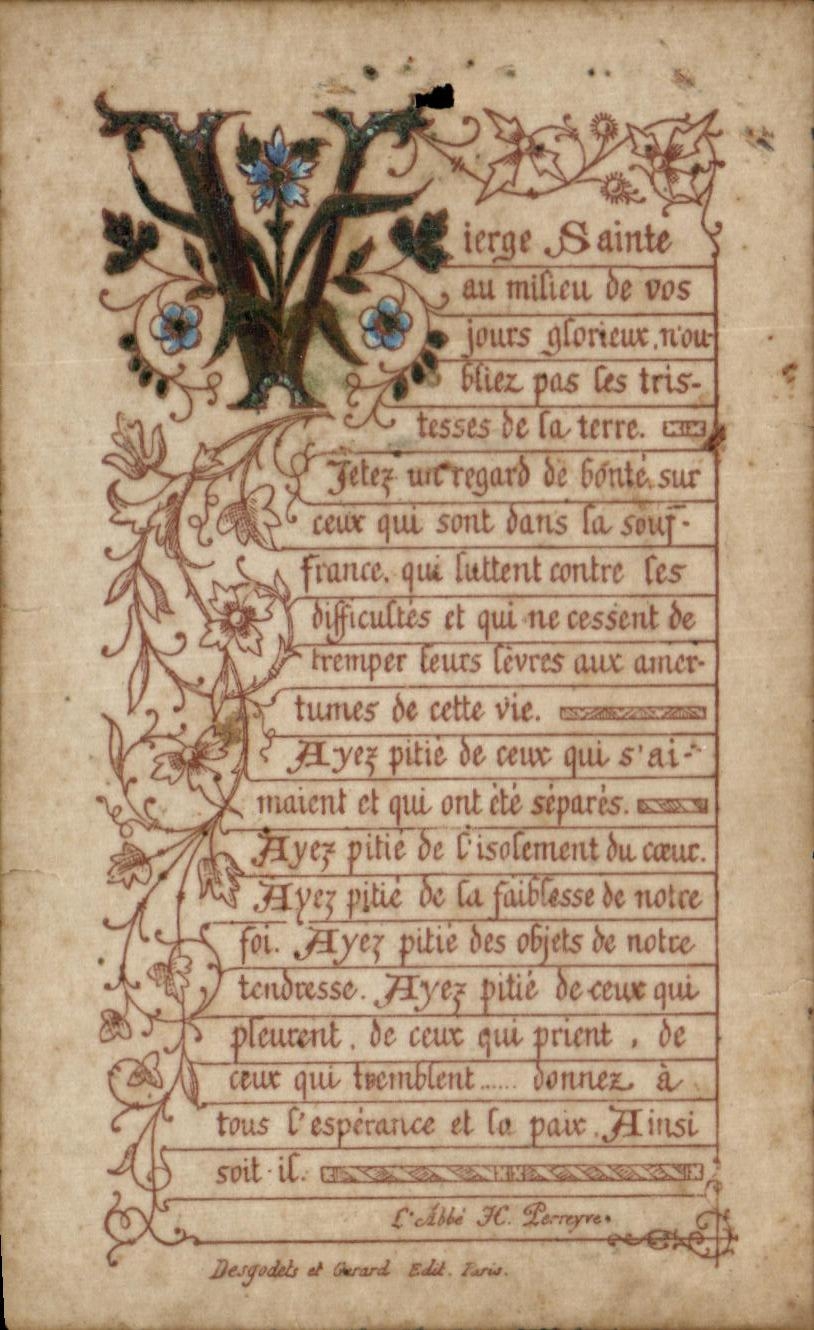 Vierge Sainte
au milieu de vos
jours glorieux, n'ou-
bliez pas les tris-
tesses de la terre.
Jetez un regard de bonté sur
ceux qui sont dans la souf-
france, qui luttent contre les
difficultés et qui ne cessent de
tremper leurs lèvres aux amer-
tumes de cette vie.
Ayez pitié de ceux qui s'ai-
maient et qui ont été séparés.
Ayez pitié de l'isolement du cœur.
Ayez pitié de la faiblesse de notre
foi. Ayez pitié des objets de notre
tendresse. Ayez pitié de ceux qui
pleurent, de ceux qui prient, de
ceux qui tremblent...... donnez à
tous l'espérance et la paix. Ainsi
soit-il.
L'Abbé H. Perreyve.
Desgodets et Gerard Edit. Paris.